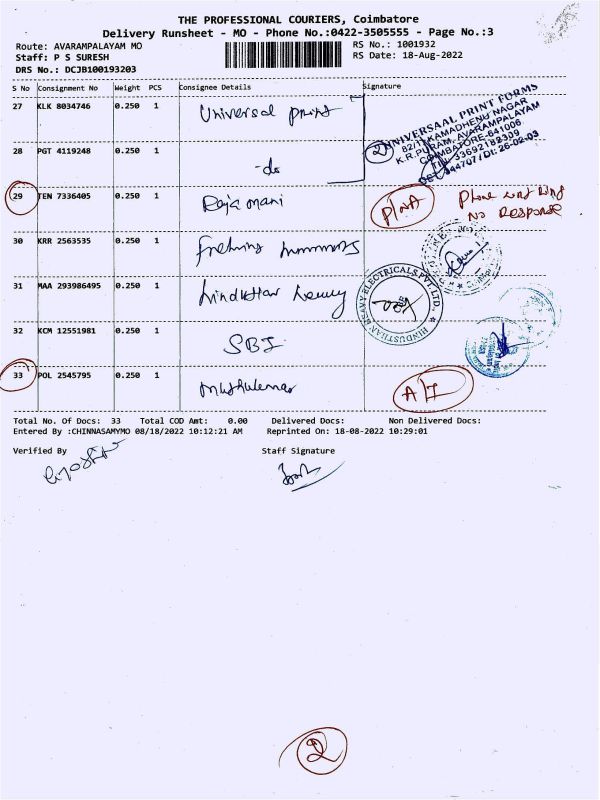 THE PROFESSIONAL COURIERS, Coimbatore
Delivery Runsheet - MO - Phone No.:0422-3505555 - Page No.:3
Route: AVARAMPALAYAM MO
RS No.: 1001932
Staff: P S SURESH
RS Date: 18-Aug-2022
DRS No.: DCJB100193203
S No Consignment No Weight PCS Consignee Details Signature
27 KLK 8034746 0.250 1 Universal print
2 UNIVERSAAL PRINT FORMS
82/1, KAMADHENU NAGAR
K.R.PURAM, AVARAMPALAYAM
COIMBATORE-641006
28 PGT 4119248 0.250 1 -do
29 TEN 7336405 0.250 1 Raja mani P/NA Phone not ring
No Response
30 KRR 2563535 0.250 1
31 MAA 293986495 0.250 1 hindustan heavy
HINDUSTHAN HEAVY ELECTRICALS PVT. LTD.
32 KCM 12551981 0.250 1 SBI
33 POL 2545795 0.250 1 Muthukumar
Total No. Of Docs: 33 Total COD Amt: 0.00 Delivered Docs: Non Delivered Docs:
Entered By :CHINNASAMYMO 08/18/2022 10:12:21 AM Reprinted On: 18-08-2022 10:29:01
Verified By Staff Signature
2